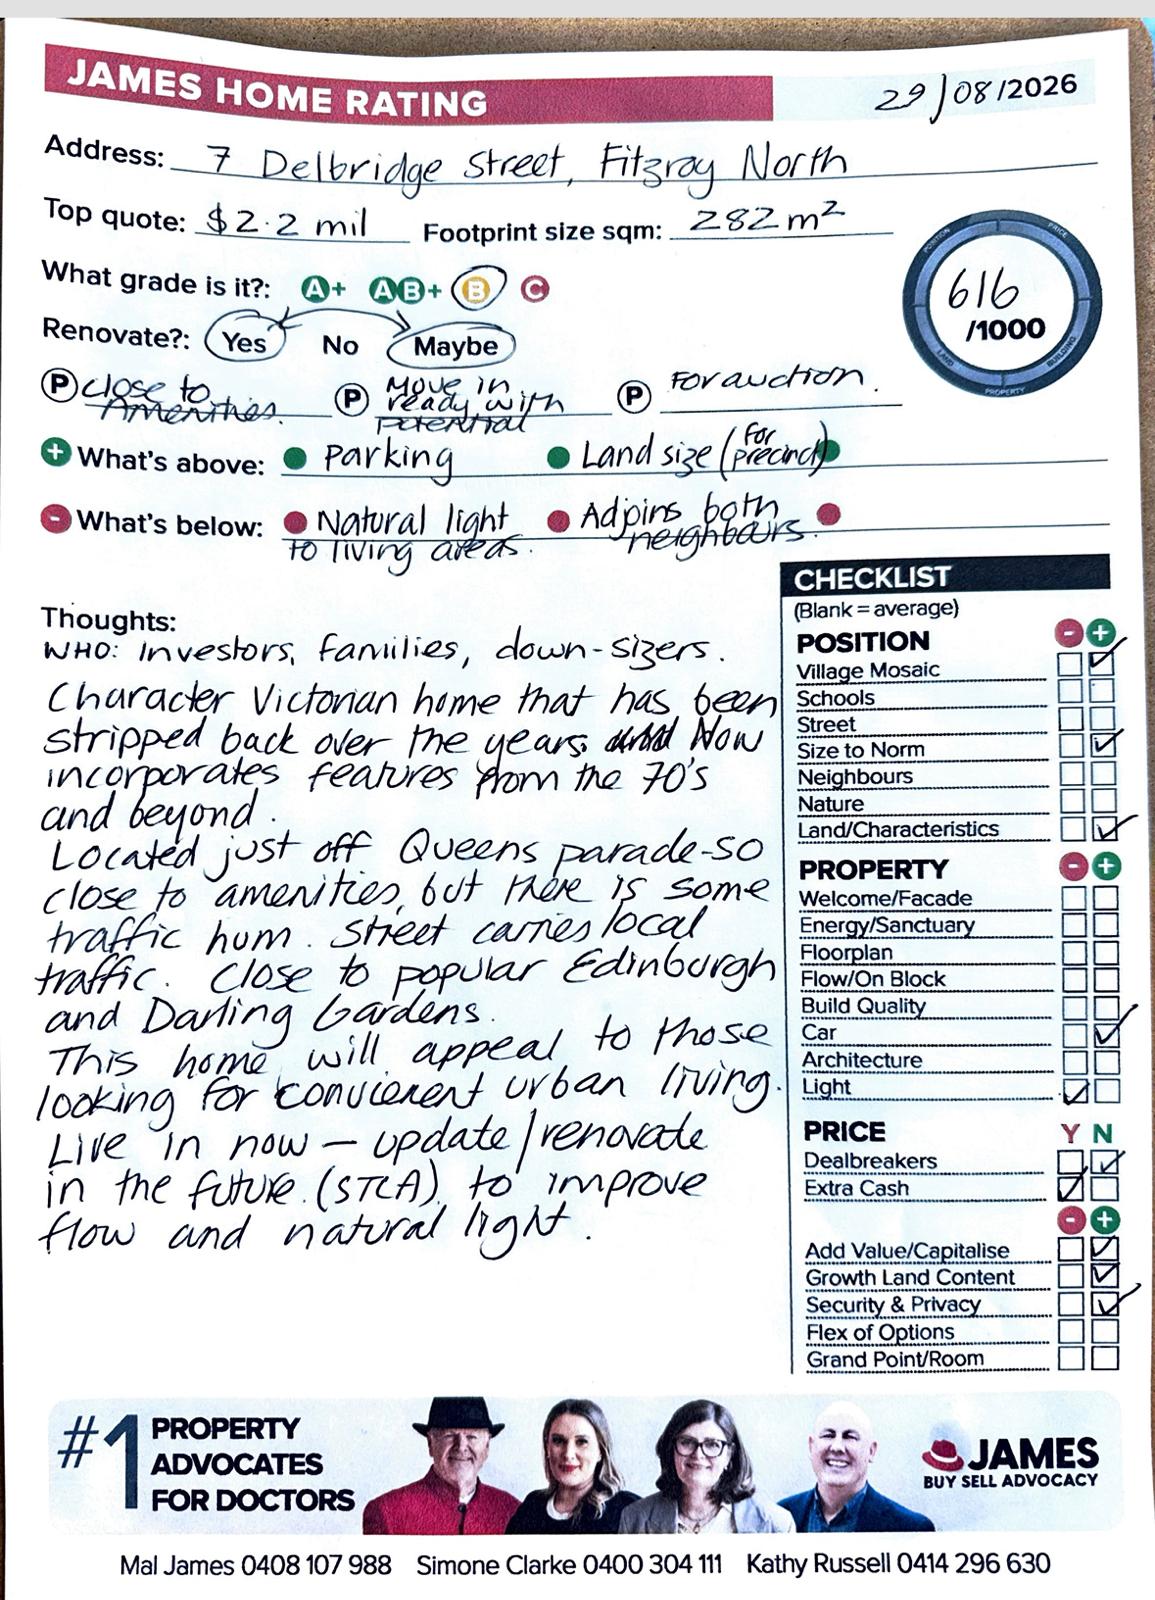 JAMES HOME RATING
29/08/2026
Address: 7 Delbridge Street, Fitzroy North
Top quote: $2.2 mil Footprint size sqm: 282 m²
What grade is it?: A+ AB+ B C
616
/1000
POSITION PRICE LAND BUILDING PROPERTY
Renovate?: Yes No Maybe
P close to Amenities. P Move in ready with potential P For auction.
+ What's above: Parking Land size (for precinct)
- What's below: Natural light to living areas. Adjoins both neighbours.
Thoughts:
WHO: Investors, families, down-sizers.
Character Victorian home that has been
stripped back over the years. Now
incorporates features from the 70's
and beyond.
Located just off Queens parade-so
close to amenities, but there is some
traffic hum. Street carries local
traffic. Close to popular Edinburgh
and Darling Gardens.
This home will appeal to those
looking for convienent urban living.
Live in now – update/renovate
in the future (STCA) to improve
flow and natural light.
CHECKLIST
(Blank = average)
POSITION - +
Village Mosaic
Schools
Street
Size to Norm
Neighbours
Nature
Land/Characteristics
PROPERTY - +
Welcome/Facade
Energy/Sanctuary
Floorplan
Flow/On Block
Build Quality
Car
Architecture
Light
PRICE Y N
Dealbreakers
Extra Cash
- +
Add Value/Capitalise
Growth Land Content
Security & Privacy
Flex of Options
Grand Point/Room
#1 PROPERTY
ADVOCATES
FOR DOCTORS
JAMES
BUY SELL ADVOCACY
Mal James 0408 107 988 Simone Clarke 0400 304 111 Kathy Russell 0414 296 630